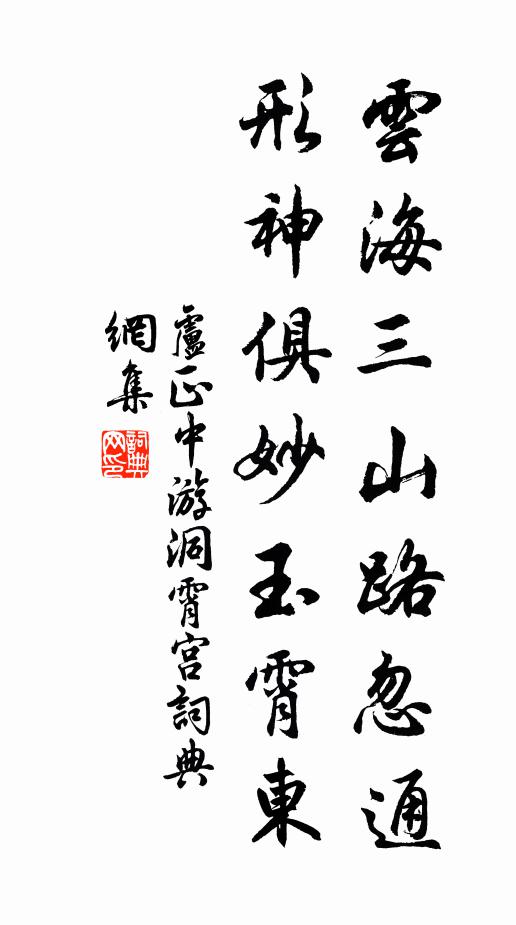 雲海三山路忽通
形神俱妙玉霄東
盧正中游洞霄宮詞典
網集
詞典
网印